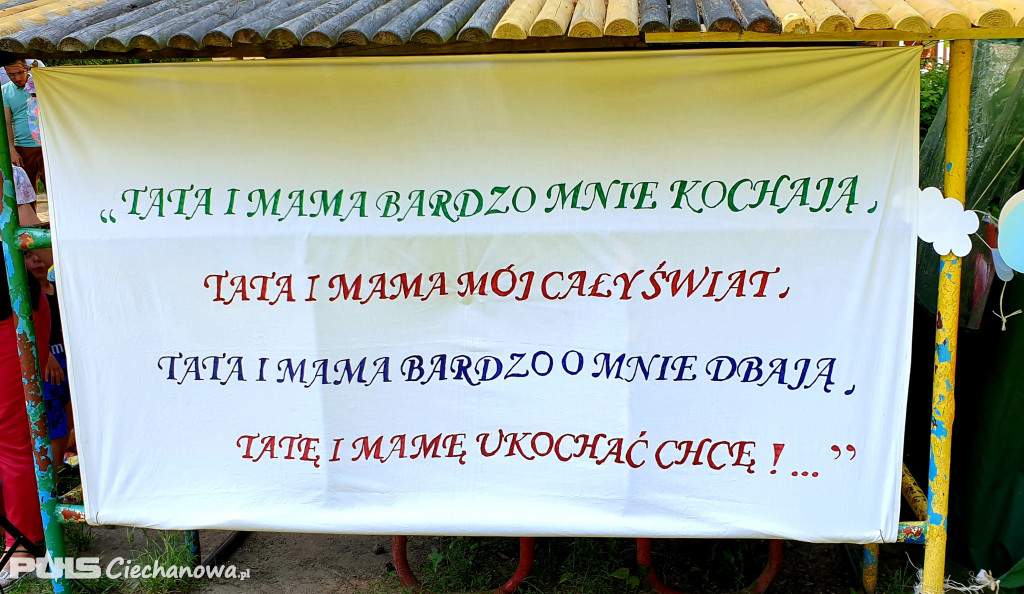 „TATA I MAMA BARDZO MNIE KOCHAJĄ,
TATA I MAMA MÓJ CAŁY ŚWIAT,
TATA I MAMA BARDZO O MNIE DBAJĄ,
TATĘ I MAMĘ UKOCHAĆ CHCĘ !...”
PULS Ciechanowa.pl